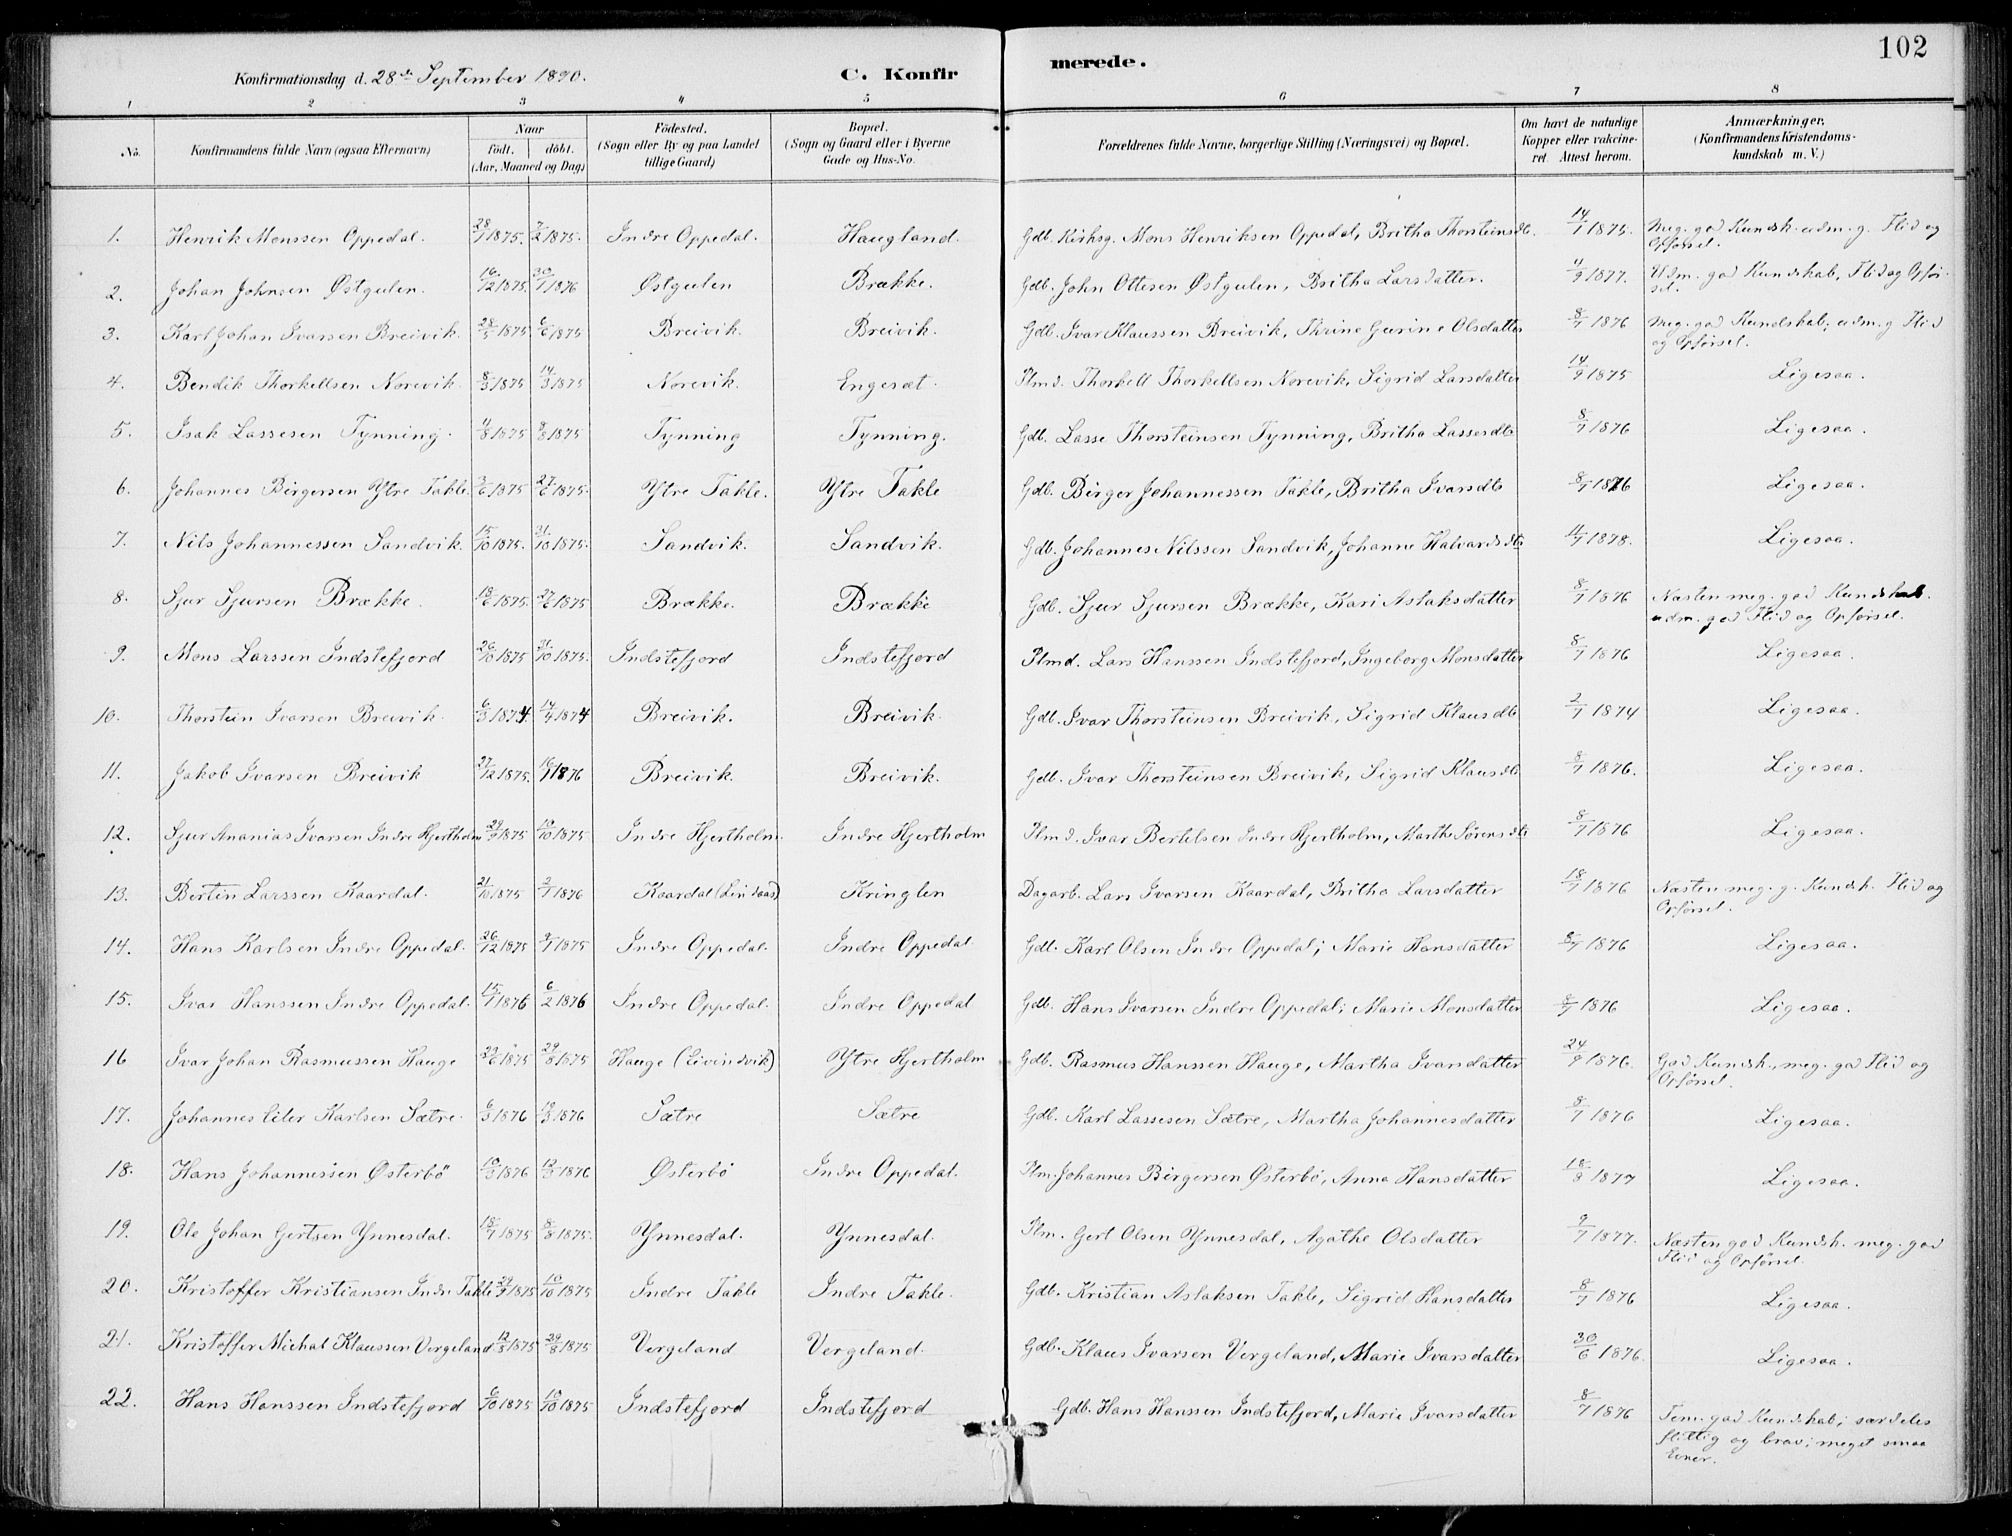 102
Konfirmationsdag d. 28de September 1890.
C. Konfirmerede.
1 2 3 4 5 6 7 8
No. Konfirmandens fulde Navn (ogsaa Efternavn) Naar födt. döbt. (Aar, Maaned og Dag) Födested. (Sogn eller By og paa Landet tillige Gaard) Bopæl. (Sogn og Gaard eller i Byerne Gade og Hus-No. Forældrenes fulde Navne, borgerlige Stilling (Næringsvei) og Bopæl. Om havt de naturlige Kopper eller vakcineret. Attest herom. Anmærkninger. (Konfirmandens Kristendomskundskab m. V.)
1. Henrik Monssen Oppedal. 28/1 1875. 7/2 1875. Indre Oppedal. Haugland. Gdb. Kirksg. Mons Henriksen Oppedal, Britha Thorsteinsdt. 14/9 1875. Meg. god Kundsk. udm. g. Flid og Opförsel.
2. Johan Johnsen Østgulen. 16/12 1875. 30/1 1876 Østgulen Brække. Gdb. John Ottesen Østgulen, Britha Larsdatter. 4/9 1877. Udm. god Kundskab, Flid og Opförsel.
3. Karl Johan Ivarsen Breivik. 28/5 1875. 6/6 1875 Breivik. Breivik. Gdb. Ivar Klaussen Breivik, Thrine Gurine Olsdatter 8/7 1876 Meg. god Kundskab; udm. g Flid og Opförsel.
4. Bendik Thorkellsen Norevik. 8/3 1875 14/3 1875 Norevik. Engesæt. Plmd. Thorkell Thorkellsen Norevik, Sigrid Larsdatter 14/9 1875 Ligesaa.
5. Isak Lassesen Tynning. 4/8 1875 8/8 1875 Tynning Tynning. Gdb. Lasse Thorsteinsen Tynning, Britha Lassesdt 8/7 1876 Ligesaa.
6. Johannes Birgersen Ytre Takle. 3/6 1875 27/6 1875. Ytre Takle. Ytre Takle Gdb. Birger Johannessen Takle, Britha Ivarsdt 8/7 1876 Ligesaa.
7. Nils Johannessen Sandvik. 15/10 1875. 31/10 1875. Sandvik. Sandvik. Gdb. Johannes Nilssen Sandvik, Johanne Halvardsdt 11/7 1878. Ligesaa.
8. Sjur Sjursen Brække. 18/6 1875. 27/6 1875 Brække. Brække Gdb. Sjur Sjursen Brække, Kari Aslaksdatter 8/7 1876 Næsten meg. god Kundskab. udm. god Flid og Opförsel.
9. Mons Larssen Indstefjord 26/10 1875 31/10 1875. Indstefjord Indstefjord Plmd. Lars Hanssen Indstefjord, Ingeborg Monsdatter 8/7 1876 Ligesaa.
10. Thorstein Ivarsen Breivik. 6/3 1874 14/4 1874 Breivik. Breivik. Gdb. Ivar Thorsteinsen Breivik, Sigrid Klausdt. 2/7 1874 Ligesaa.
11. Jakob Ivarsen Breivik 27/12 1875. 16/1 1876 Breivik. Breivik. Gdb. Ivar Thorsteinsen Breivik, Sigrid Klausdt. 8/7 1876. Ligesaa.
12. Sjur Ananias Ivarsen Indre Hjertholm 29/9 1875 10/10 1875. Indre Hjertholm. Indre Hjertholm Plmd. Ivar Bertelsen Indre Hjertholm, Marthe Sörensdt 8/7 1876 Ligesaa.
13. Bertin Larssen Kaardal. 21/10 1875 2/1 1876 Kaardal (Lindaas) Kringlen Dagarb. Lars Ivarsen Kaardal, Britha Larsdatter 18/7 1876 Næsten meg. g. Kundsk. Flid og Opförsel.
14. Hans Karlsen Indre Oppedal. 26/12 1875 9/1 1875 Indre Oppedal. Indre Oppedal Gdb. Karl Olsen Indre Oppedal; Marie Hansdatter 8/7 1876 Ligesaa.
15. Ivar Hanssen Indre Oppedal. 15/1 1876 6/2 1876 Indre Oppedal. Indre Oppedal Gdb. Hans Ivarsen Indre Oppedal; Marie Monsdatter 8/7 1876 Ligesaa.
16 Ivar Johan Rasmussen Hauge 29/6 1875 29/8 1875 Hauge (Evindvik) Ytre Hjertholm Gdb. Rasmus Hanssen Hauge, Martha Ivarsdatter 24/9 1876. God Kundsk., meg. god Flid og Opförsel.
17. Johannes Karlsen Sætre. 6/3 1876 19/3 1876 Sætre Sætre Gdb. Karl Lassesen Sætre, Martha Johannesdatter 8/7 1876 Ligesaa.
18. Hans Johannessen Østerbö 10/3 1876 12/3 1876 Østerbö Indre Oppedal. Plm. Johannes Birgersen Østerbö, Anna Hansdatter 18/9 1877 Ligesaa.
19. Ole Johan Gertsen Ynnesdal. 18/7 1875 8/8 1875. Ynnesdal. Ynnesdal. Plm. Gert Olsen Ynnesdal, Agathe Olsdatter 9/7 1877. Næsten god Kundsk. meg. god Flid og Opförsel.
20. Kristoffer Kristiansen Indre Takle 29/9 1875 10/10 1875 Indre Takle Indre Takle. Gdb. Kristian Aslaksen Takle, Sigrid Hansdatter 8/7 1876 Ligesaa.
21. Kristoffer Michal Klaussen Vergeland 12/8 1875 29/8 1875 Vergeland Vergeland. Gdb. Klaus Ivarsen Vergeland, Marie Ivarsdatter 30/6 1876. Ligesaa.
22. Hans Hanssen Indstefjord 6/10 1875 10/10 1875 Indstefjord Indstefjord Gdb. Hans Hanssen Indstefjord, Marie Ivarsdatter 8/7 1876 Tem. god Kundskab; særdeles flittig og brav; meget smaa Evner.